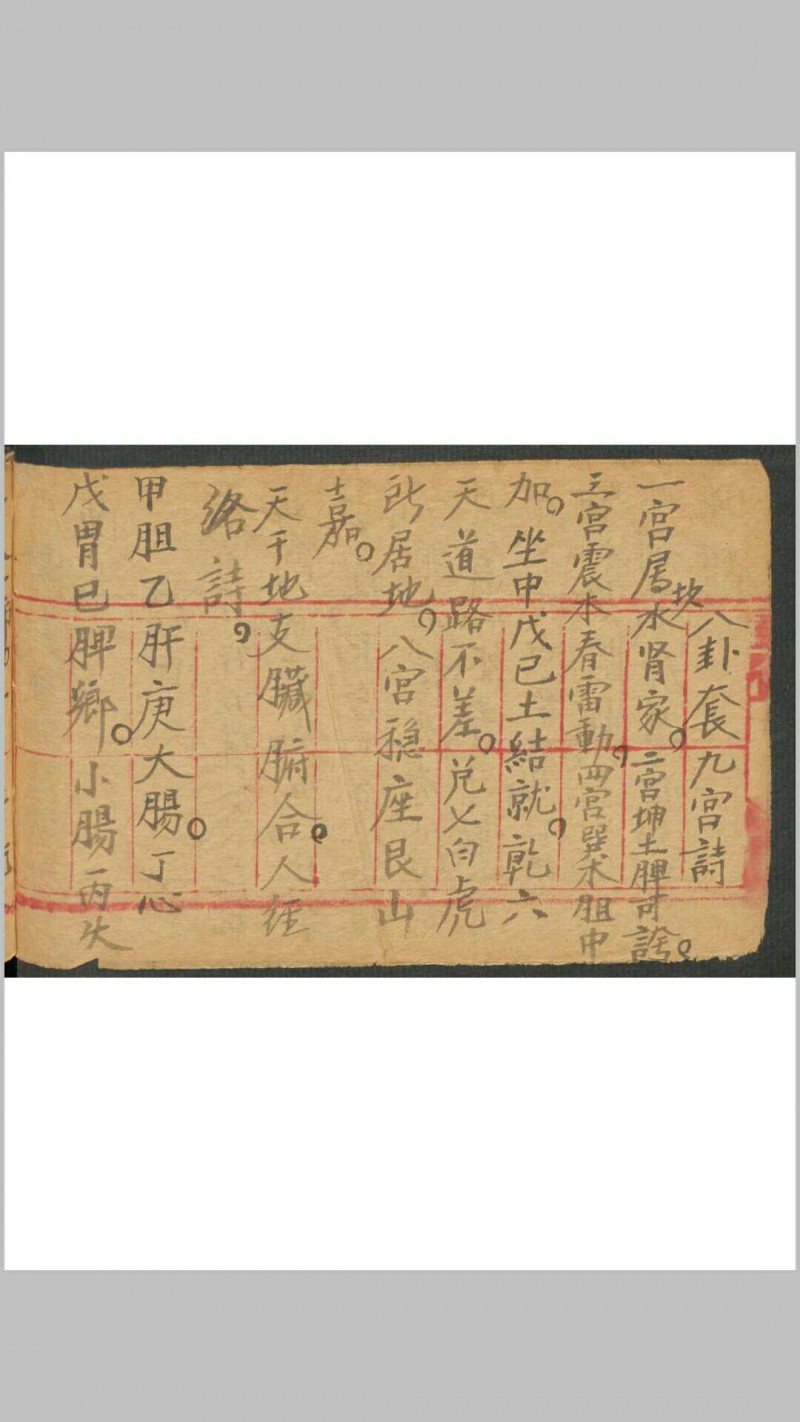 八卦套九宮詩
一宮屬坎水肾家。二宮坤土脾可誇。
三宮震木春雷動。四宮巽木胆中
加。坐中戊己土結就。乾六
天道路不差。兑七白虎
此居地。八宮稳座艮山
嘉。
天干地支臟腑合人经
络詩。
甲胆乙肝庚大腸。丁心
戊胃巳脾鄉。小腸丙火